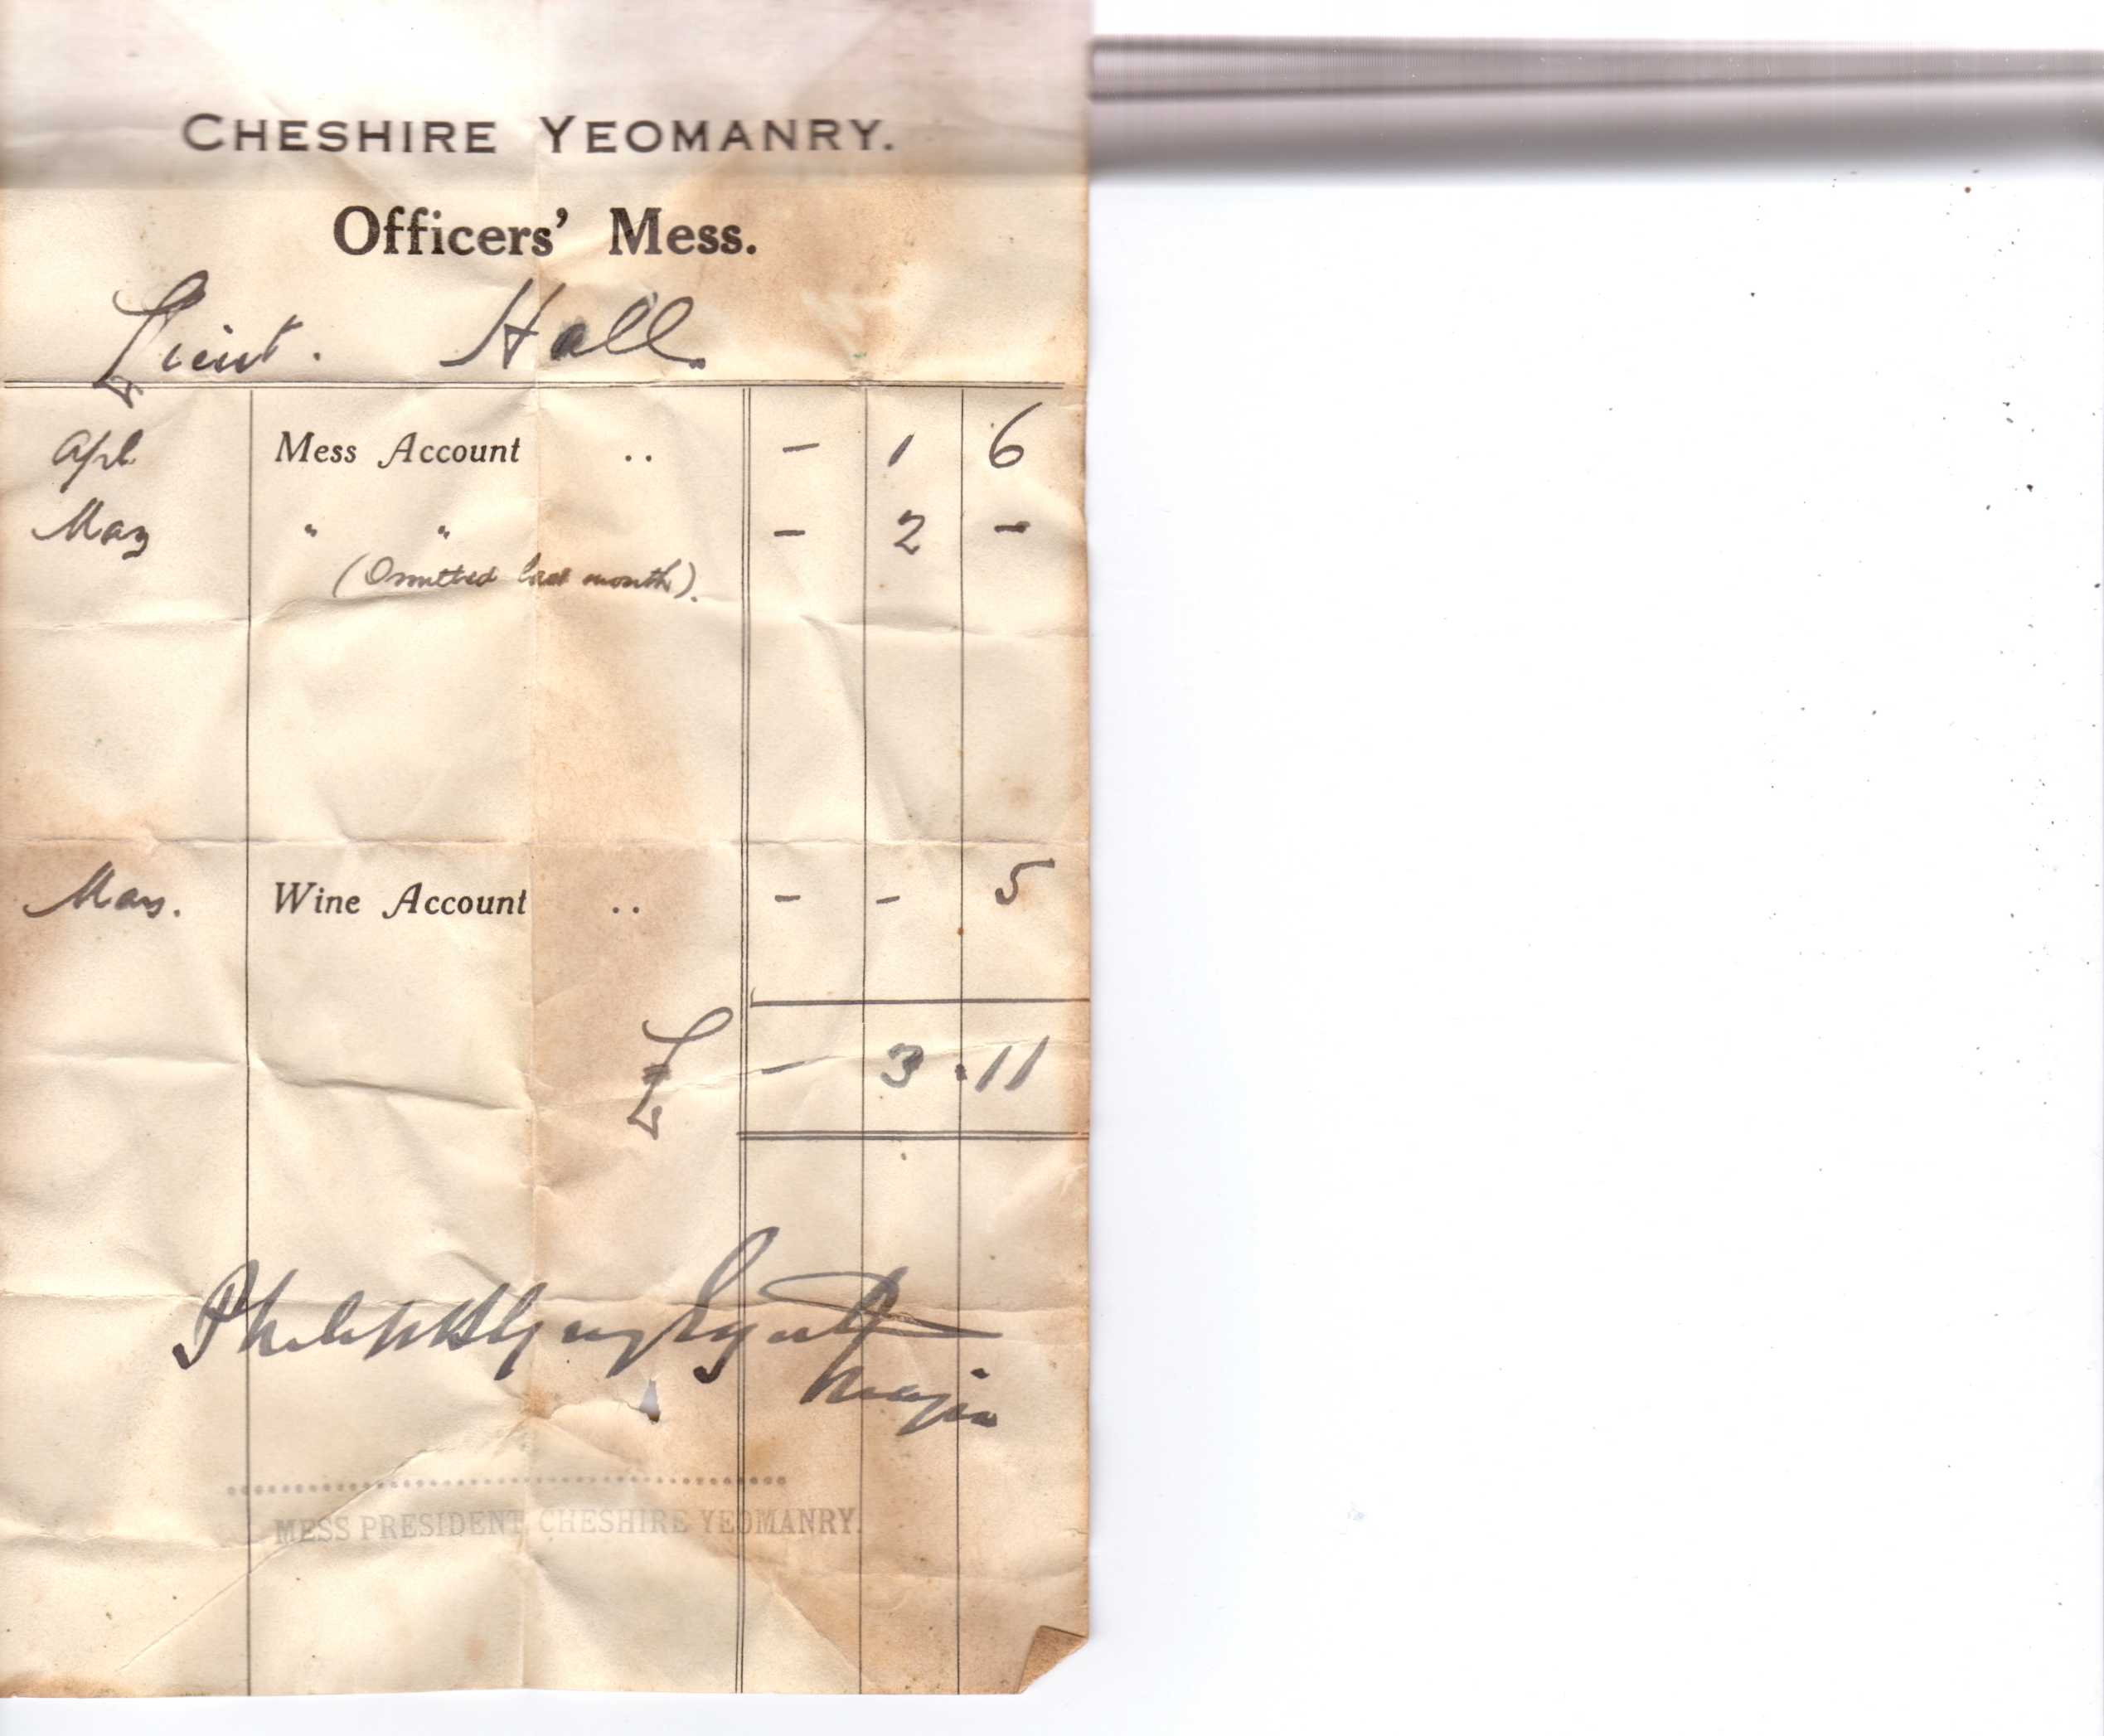 CHESHIRE YEOMANRY.
Officers' Mess.
Lieut. Hall.
Apl Mess Account .. - 1 6
May " " - 2 -
(Omitted last month).
May. Wine Account .. - - 5
£ - 3 . 11
Major
MESS PRESIDENT, CHESHIRE YEOMANRY.